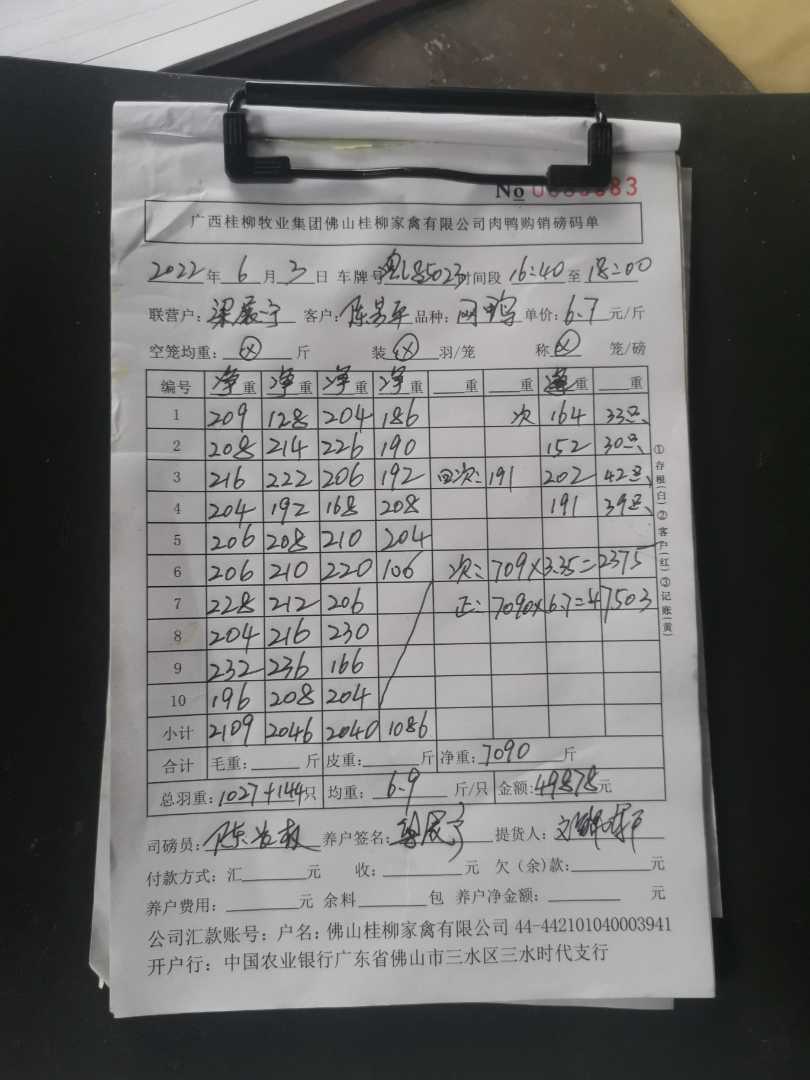 No 0
83
广西桂柳牧业集团佛山桂柳家禽有限公司肉鸭购销磅码单
2022年6月3日 车牌号 85023 时间段 16:40 至 18:00
联营户: 梁展宁 客户: 陈昌平 品种: 单价: 6.7 元/斤
空笼均重: 斤 装 羽/笼 称 笼/磅
编号 净重 净重 净重 净重 重 重 净重 重
1 209 128 204 186 次 164 33只
2 208 214 226 190 152 30只
3 216 222 206 192 四次: 191 202 42只
4 204 192 168 208 191 39只
5 206 208 210 204
6 206 210 220 106 次: 709×3.35=2375
7 228 212 206 正: 7090×6.7=47503
8 204 216 230
9 232 236 166
10 196 208 204
小计 2109 2046 2040 1086
合计 毛重: 斤 皮重: 斤 净重: 7090 斤
总羽重: 1027+144只 均重: 6.9 斤/只 金额: 49878元
司磅员: 陈 养户签名: 梁展宁 提货人:
付款方式: 汇 元 收: 元 欠(余)款: 元
养户费用: 元 余料 包 养户净金额: 元
公司汇款账号: 户名: 佛山桂柳家禽有限公司 44-442101040003941
开户行: 中国农业银行广东省佛山市三水区三水时代支行
①存根(白)②客户(红)③记账(黄)